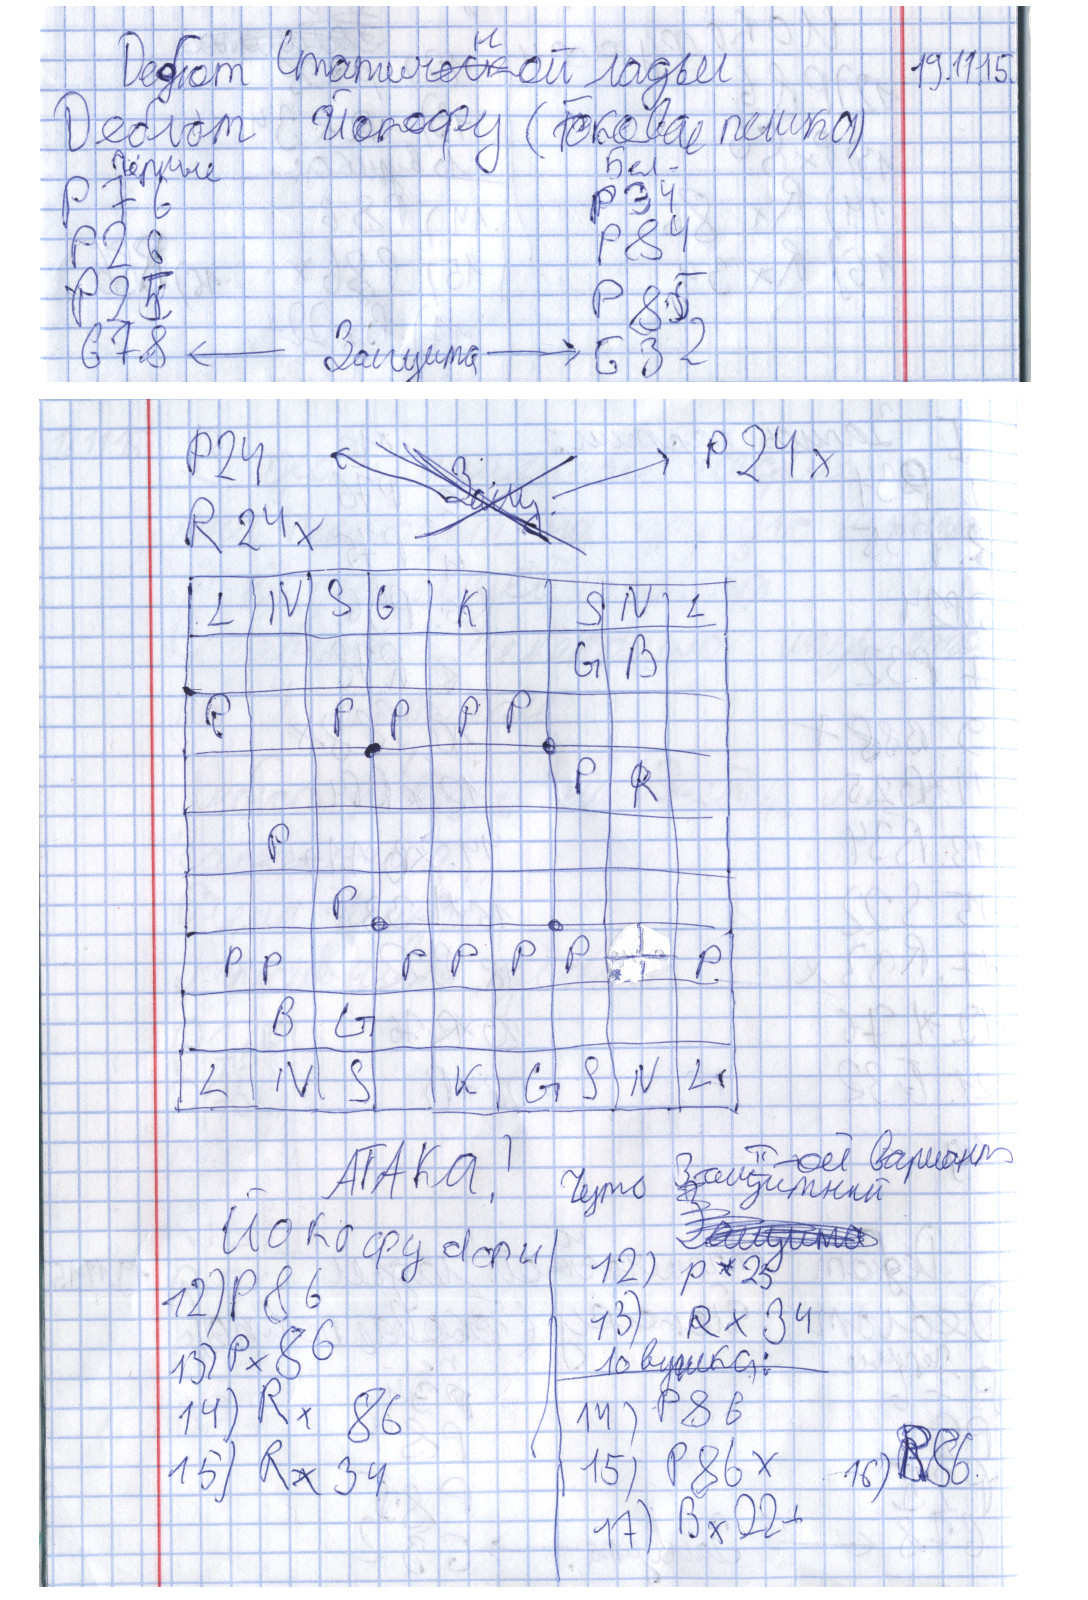 Дебют Статической ладьи 19.11.15.
н
Дебют Йокофу (Боковая пешка)
Чёрные Бел-
P76 P34
P26 P84
P25 P85
G78 ← Защита → G32
P24 Защ. P24x
R24x
L N S G K S N L
G B
P P P P P
P R
P
P
P P P P P P P
B G
L N S K G S N L
АТАКА!
Йокофудори
12) P86
13) Px86
14) Rx 86
15) Rx 34
II-ой вариант
Защитный
12) P*25
13) Rx34
ловушка:
14) P86
15) P86x 16) R86.
17) Bx22+